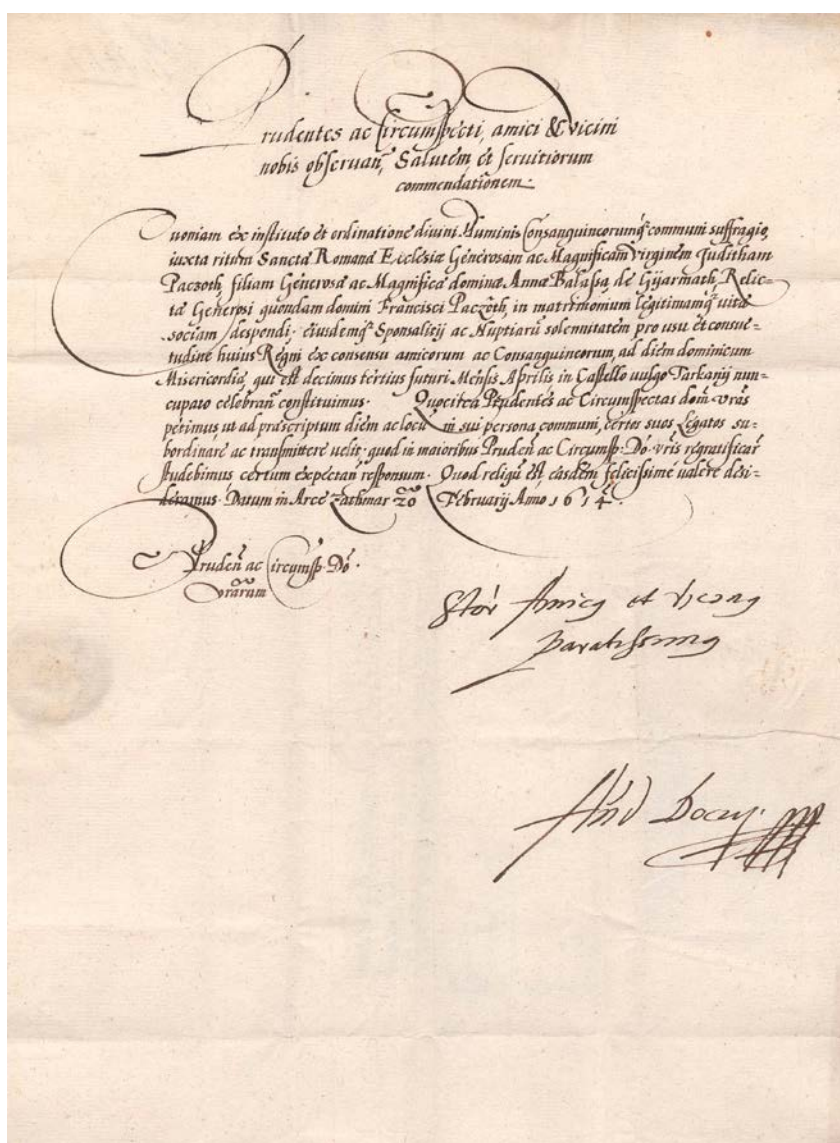 Prudentes ac Circumspecti, amici & vicini
nobis observan̄, Salutem et servitiorum
commendationem.
Quoniam ex instituto et ordinatione divini Numinis Consanguineorumq́ communi suffragio,
iuxta ritum Sanctæ Romanæ Ecclesiæ Generosam ac Magnificam Virginem Juditham
Paczoth, filiam Generosæ ac Magnificæ dominæ Annæ Balassa de Gyarmath, Relic-
tæ Generosi quondam domini Francisci Paczoth, in matrimonium legitimamq́ vitæ
sociam despondi. eiusdemq́ Sponsalitij ac Nuptiarū solemnitatem pro usu et consue-
tudine huius Regni ex consensu amicorum ac Consanguineorum, ad diem dominicum
Misericordiæ, qui est decimus tertius futuri Mensis Aprilis in Castello vulgo Tarkanÿ nun-
cupato celebran̄ constituimus. Quocirca Prudentes ac Circumspectas dom̄ vr̄as
petimus, ut ad præscriptum diem ac locū in sui persona communi, certos suos Legatos su-
bordinare ac transmittere velit. quod in maioribus Pruden̄ ac Circumsp. Do. vr̄is regratificar̄
studebimus certum expectan̄ responsum. Quod reliqū est, easdem felicissime valere desi-
deramus. Datum in Arce Zathmar 20 Februarij Anno 1614.
Pruden̄ ac Circumsp. Do.
vr̄arum
Amicus et vicinus
paratissimus
And Doczy